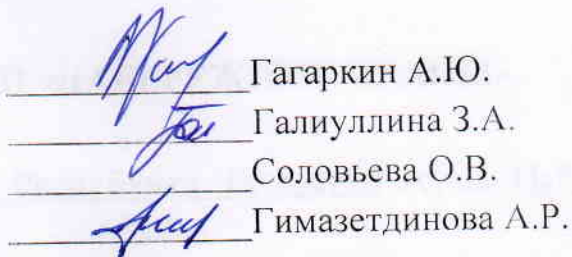 Гагаркин А.Ю.
Галиуллина З.А.
Соловьева О.В.
Гимазетдинова А.Р.